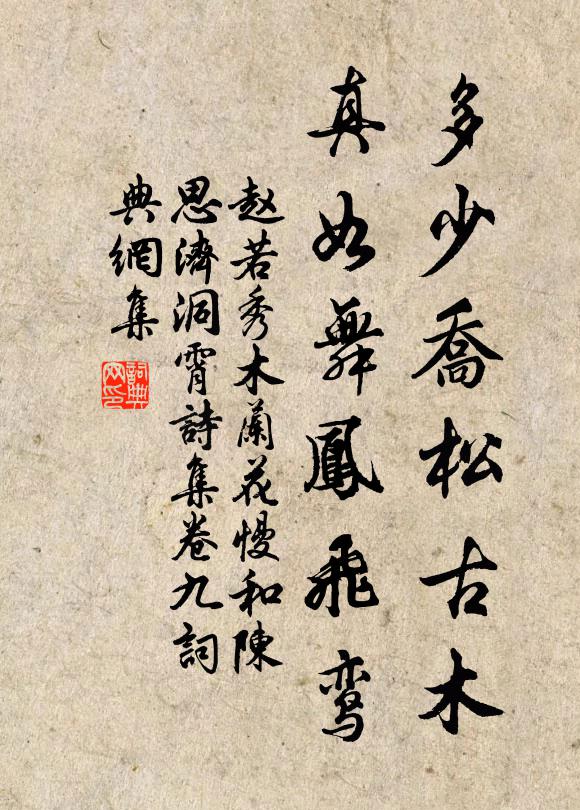 多少喬松古木
真如舞鳳飛鸾
赵若秀木蘭花慢和陳
思濟洞霄詩集卷九詞
典網集
詞典
网印